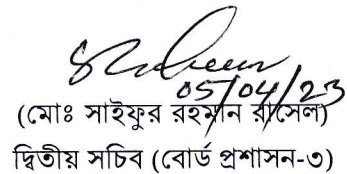 05/04/23
(মোঃ সাইফুর রহমান রাসেল)
দ্বিতীয় সচিব (বোর্ড প্রশাসন-৩)